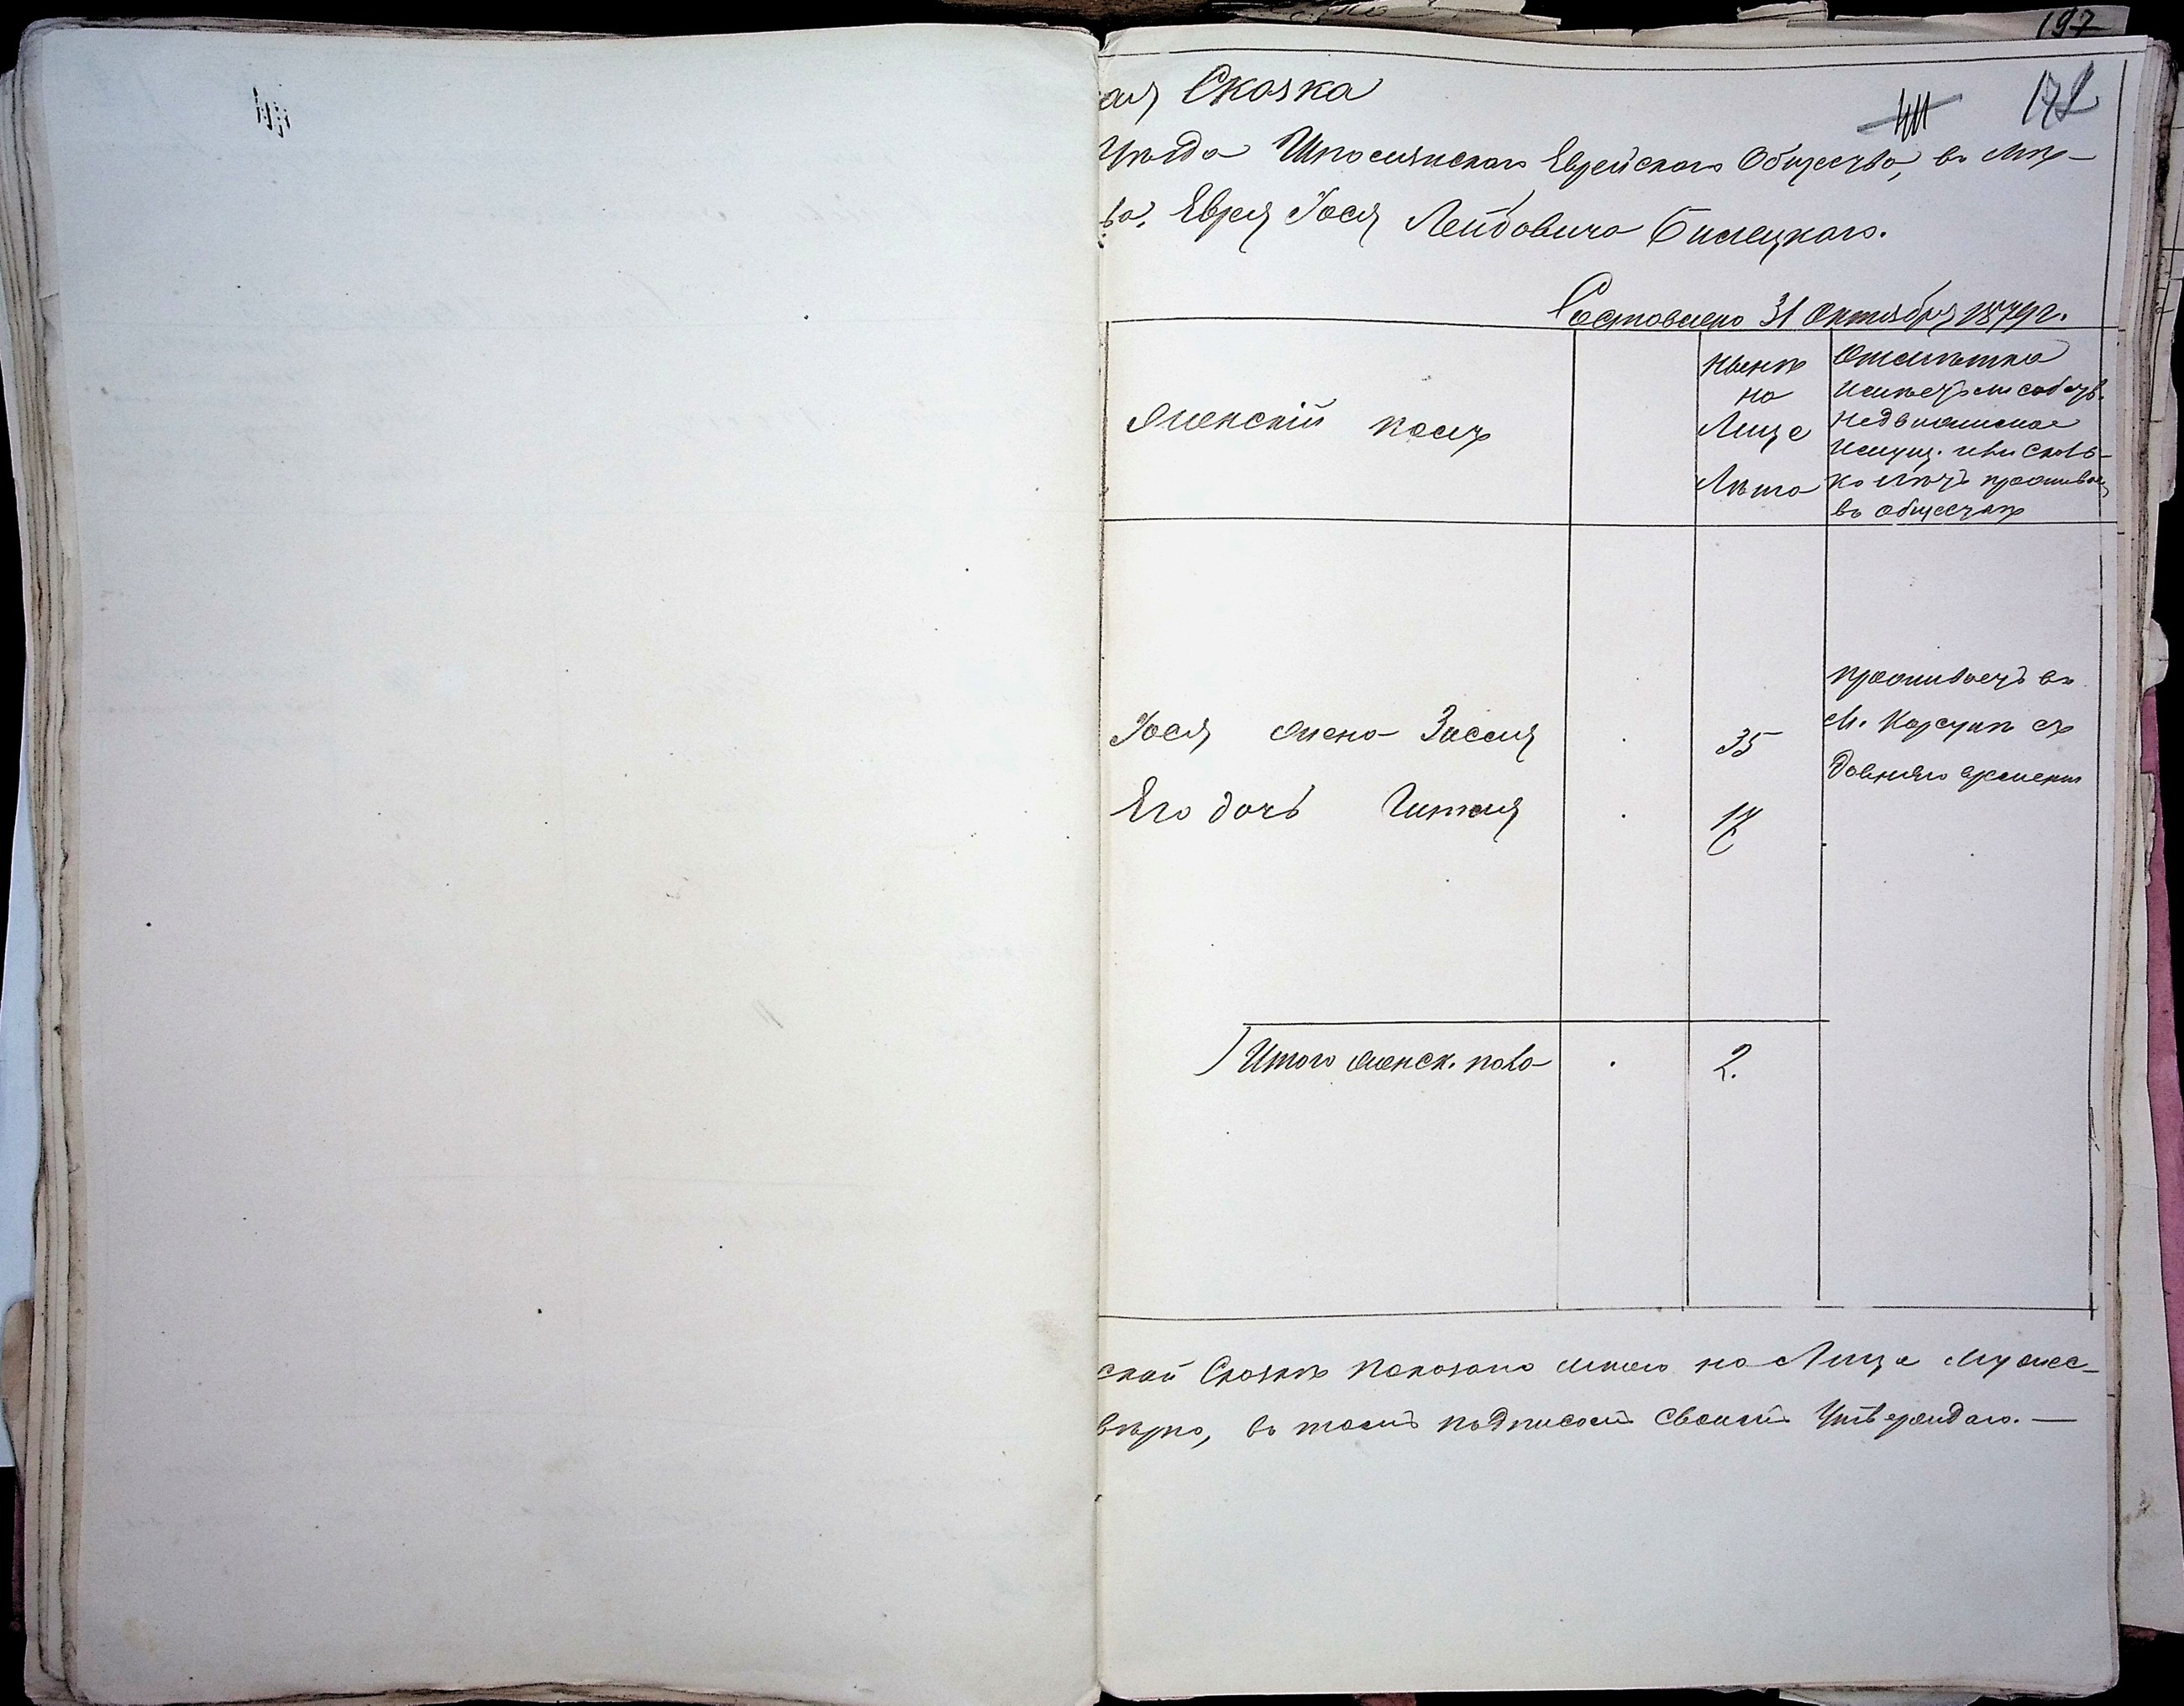 197
171
ая Сказка
Уѣзда Шполянскаго Еврейскаго Общества, въ Мѣ-
ва, Еврея Іося Лейбовича Билецкаго.
Составлено 31 Октября 1879 г.
Женскій полъ
Нынѣ
на
Лице
Лѣта
Отмѣтка
Имѣетъ ли собств.
Недвижимое
Имущ. или Сколь-
ко лѣтъ проживае
въ обществѣ
Іося жена Зисля
35
Проживаетъ въ
М. Корсунѣ съ
давняго времени
Его дочь Гитля
17
Итого женск. пола
2.
ской Сказкѣ показано мною на Лице мужес-
вѣрно, въ томъ подписомъ своимъ Утверждаю. —